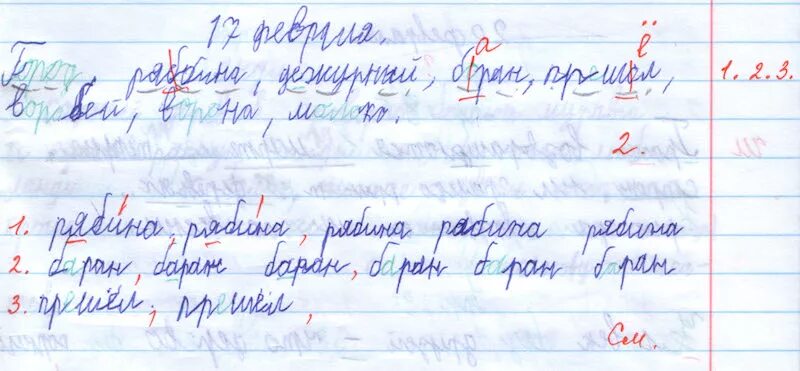 17 февраля.
Город, рябина, дежурный, баран, прешёл, 1. 2. 3.
воробей, ворона, молоко.
2.
1. рябина, рябина, рябина рябина рябина
2. баран, баран баран, баран баран баран
3. прешёл, прешёл,
См.